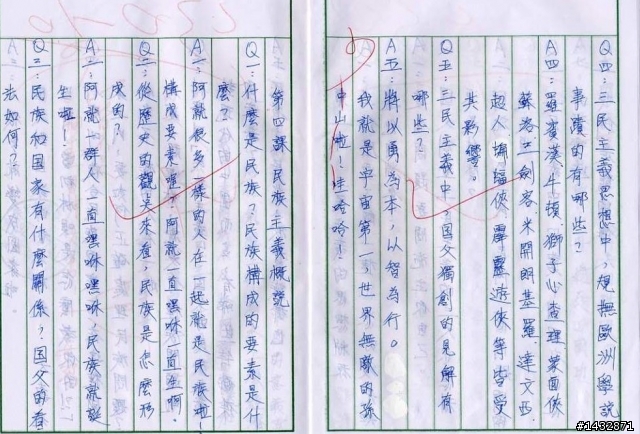 Q四：三民主義思想中，規撫歐洲學說
事蹟的有哪些？
A四：羅賓漢、牛頓、獅子心查理、蒙面俠
蘇洛、三劍客、米開朗基羅、達文西、
超人、蝙蝠俠、霹靂遊俠等皆受
其影響。
Q五：三民主義中，国父獨創的見解有
哪些？
A五：將以勇為本，以智為行。
我就是宇宙第一，世界無敵的孫
中山啦！哇哈哈！
第四課 民族主義概說
Q一：什麼是民族？民族構成的要素是什
麼？
A一：阿就很多一樣的人在一起就是民族啦！
構成要素嘿？阿就一直嘿咻一直生啊。
Q二：從歷史的觀點來看，民族是怎麼形
成的？
A二：阿就一群人一直嘿咻嘿咻，民族就誕
生啦！
Q三：民族和国家有什麼關係，国父的看
法如何？
#1432871